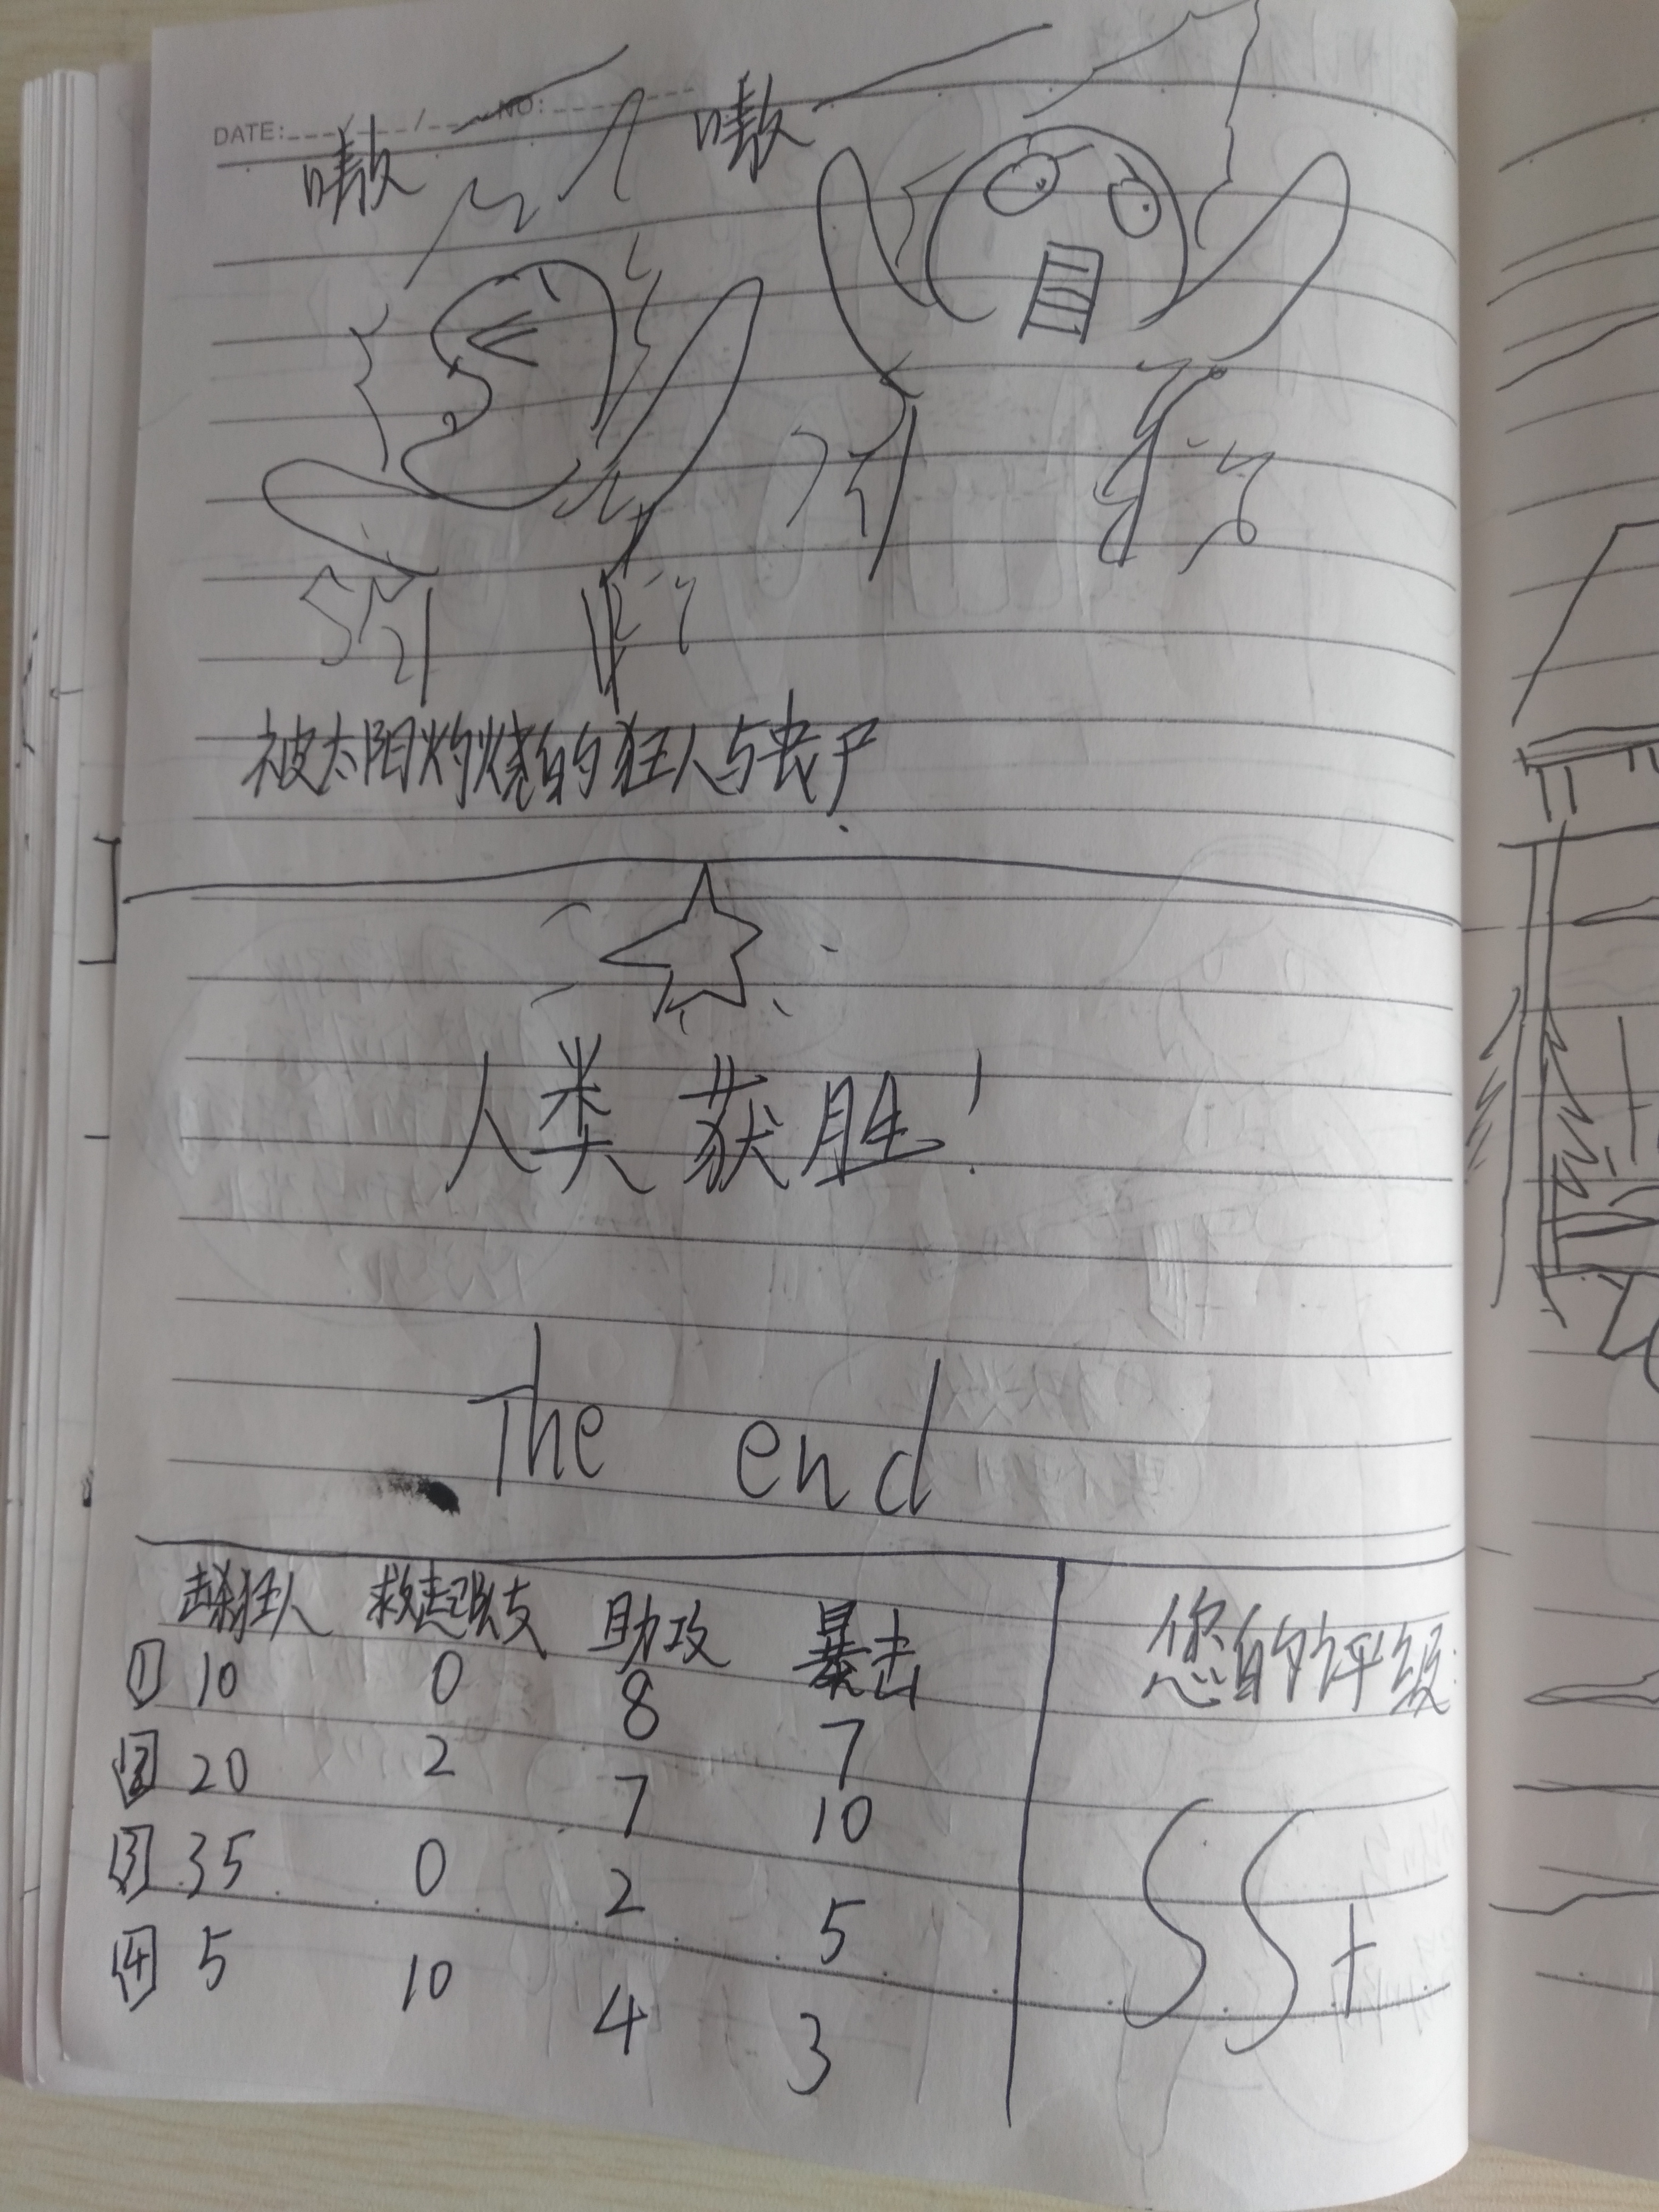 DATE: / / NO:
嗷 嗷
被太阳灼烧的狂人与丧尸
人类获胜!
The end
击杀狂人 救起队友 助攻 暴击
① 10 0 8 7
② 20 2 7 10
③ 35 0 2 5
④ 5 10 4 3
您的评级:
SS+